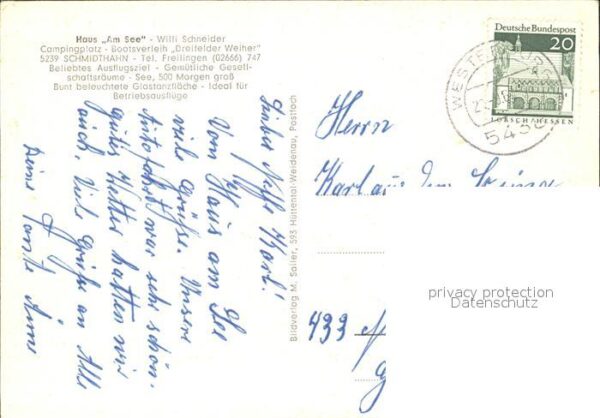 Haus „Am See“ - Willi Schneider
Campingplatz - Bootsverleih „Dreifelder Weiher“
5239 SCHMIDTHAHN - Tel. Freilingen (02666) 747
Beliebtes Ausflugsziel - Gemütliche Gesell-
schaftsräume - See, 500 Morgen groß
Bunt beleuchtete Glastanzfläche - Ideal für
Betriebsausflüge
Lieber Neffe Karl!
Vom Haus am See
viele Grüße. Unsere
Autofahrt war sehr schön.
gutes Wetter hatten wir
auch. Viele Grüße an Alle
Deine Tante Änne
Bildverlag M. Sailer, 593 Hüttental-Weidenau, Postfach
Deutsche Bundespost
20
LORSCH/HESSEN
WESTERBURG
543
Herrn
Karl
433
privacy protection
Datenschutz